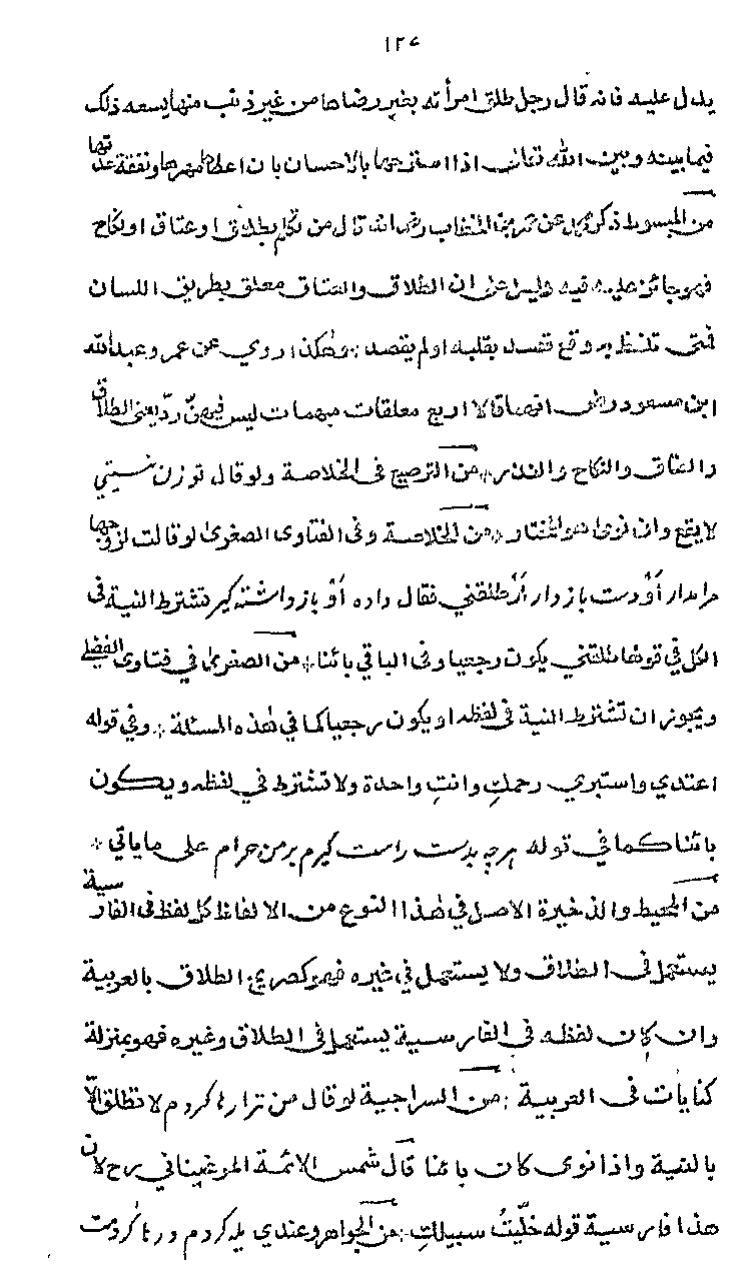 ١٢٤
يدل عليه فانه قال رجل طلق امرأته بغير رضاها من غير ذنب منها يسعه ذلك
فيما بينه وبين الله تعالى اذا سرحها بالاحسان بان اعطاها مهرها ونفقة عدتها
من المبسوط ذكر عن عمر بن الخطاب رضى الله قال من تكلم بطلاق او عتاق او نكاح
فهو جائز عليه فيه دليل على ان الطلاق والعتاق معلق بطريق اللسان
فمتى تلفظ به وقع قصد بقلبه او لم يقصد وهكذا روي عن عمر وعبدالله
ابن مسعود رضى انهما قالا اربع معلقات مبهمات ليس فيهن ردّ يعنى الطلاق
والعتاق والنكاح والنذر * من الترصيح فى الخلاصة ولو قال توزن نسيتي
لا يقع وان نوى هو المختار * من الخلاصة وفى الفتاوى الصغرى لو قالت لزوجها
مرا مدار أوْ دست بازدار أوْ طلقني فقال داده أوْ بازداشته كير تشترط النية فى
الكل في قولها طلقني يكون رجعيا وفى الباقي بائنا * من الصغرى في فتاوى الفضلى
ويجوز ان تشترط النية فى لفظه او يكون رجعيا كما في هذه المسئلة * وفي قوله
اعتدي واستبري رحمكِ وانتِ واحدة ولا تشترط في لفظه ويكون
بائنا كما في قوله هرچه بدست راست كيرم بر من حرام على ما ياتي *
من المحيط والذخيرة الاصل في هذا النوع من الالفاظ كل لفظ فى الفارسية
يستعمل فى الطلاق ولا يستعمل في غيره فهو كصريح الطلاق بالعربية
وان كان لفظه فى الفارسية يستعمل فى الطلاق وغيره فهو بمنزلة
كنايات فى العربية * من السراجية لو قال من ترا رها كردم لا تطلق الّا
بالنية واذا نوى كان بائنا قال شمس الائمة المرغيناني رح لان
هذا فارسية قوله خلّيتُ سبيلكِ * من الجواهر وعندي يله كردم ورها كردمت